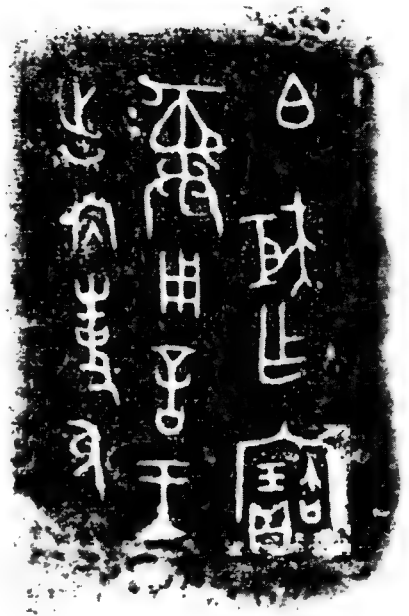 白矩乍寶
彝用言王
出内事人